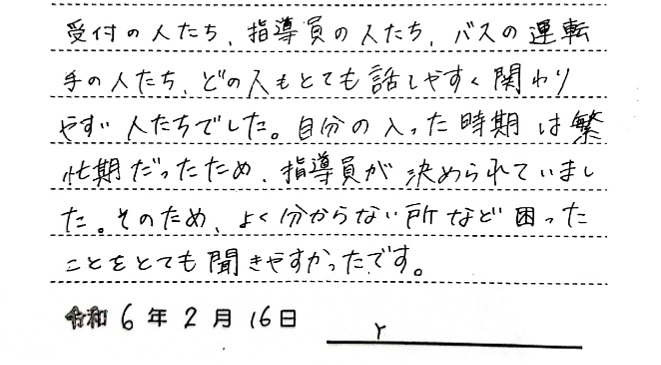 受付の人たち、指導員の人たち、バスの運転
手の人たち、どの人もとても話しやすく関わり
やすい人たちでした。自分の入った時期は繁
忙期だったため、指導員が決められていまし
た。そのため、よく分からない所など困った
ことをとても聞きやすかったです。
令和6年2月16日 r